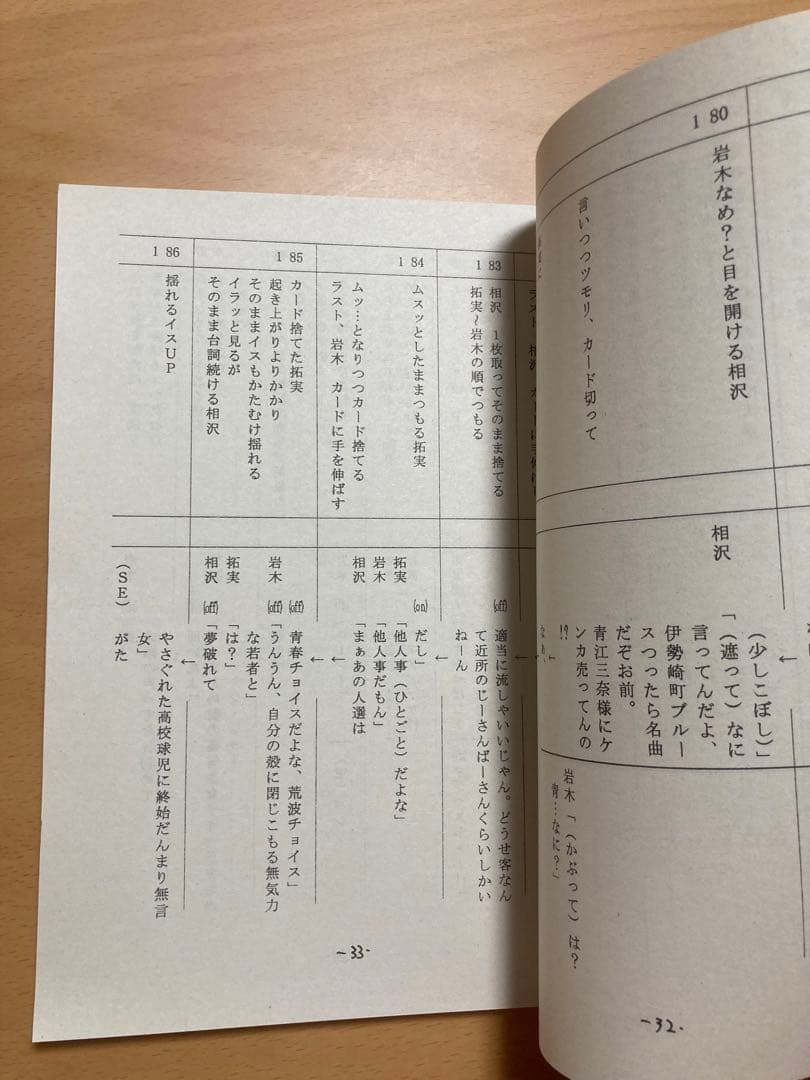 180
岩木なめ?と目を開ける相沢
言いつつツモリ、カード切って
相沢
(少しこぼし)」
「(遮って)なに
言ってんだよ、
伊勢崎町ブルー
スつったら名曲
だぞお前。
青江三奈様にケ
ンカ売ってんの
!?
岩木「(かぶって)は?
青…なに?」
-32-
183
相沢 1枚取ってそのまま捨てる
拓実~岩木の順でつもる
(off)
適当に流しゃいいじゃん。どうせ客なん
て近所のじーさんばーさんくらいしかい
ねーん
184
ムスッとしたままつもる拓実
ムッ…となりつつカード捨てる
ラスト、岩木 カードに手を伸ばす
(on)
だし」
拓実「他人事(ひとごと)だよな」
岩木「他人事だもん」
相沢「まぁあの人選は
185
カード捨てた拓実
起き上がりよりかかり
そのままイスもかたむけ揺れる
イラッと見るが
そのまま台詞続ける相沢
(off)青春チョイスだよな、荒波チョイス」
岩木(off)「うんうん、自分の殻に閉じこもる無気力
な若者と」
拓実「は?」
相沢(off)「夢破れて
186
揺れるイスUP
やさぐれた高校球児に終始だんまり無言
女」
(SE)がた
-33-